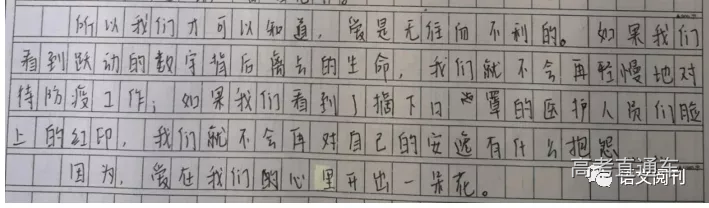 所以我们才可以知道，爱是无往而不利的。如果我们
看到跃动的数字背后离去的生命，我们就不会再轻慢地对
待防疫工作；如果我们看到了摘下口罩的医护人员们脸
上的红印，我们就不会再对自己的安逸有什么抱怨
因为，爱在我们的心里开出一朵花。
高考直通车
语文阅刊